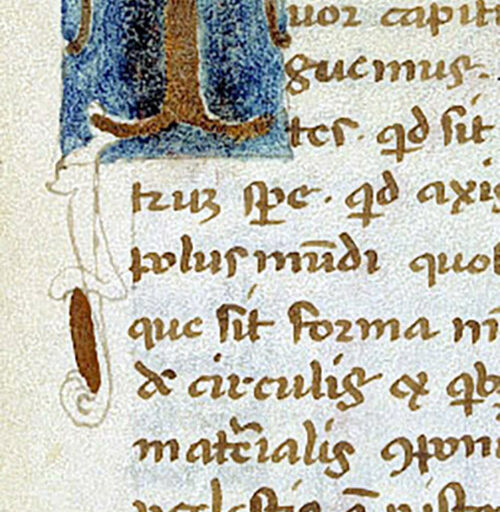 uor capit
guemus.
tes. qd sit
truʒ spe. qd axis
polus mūdi quol
que sit forma m
de circulis ex qb
mat̄ialis ꝯpon